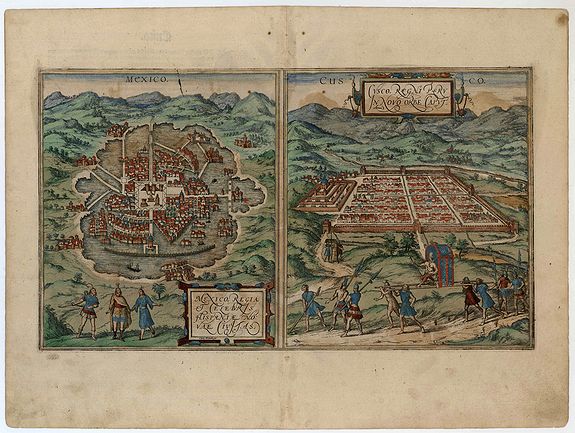 MEXICO.
CUSCO.
CVSCO, REGNI PERV
IN NOVO ORBE CAPVT.
MEXICO, REGIA
ET CELEBRIS
HISPANIÆ NO-
VAE CIVITAS.